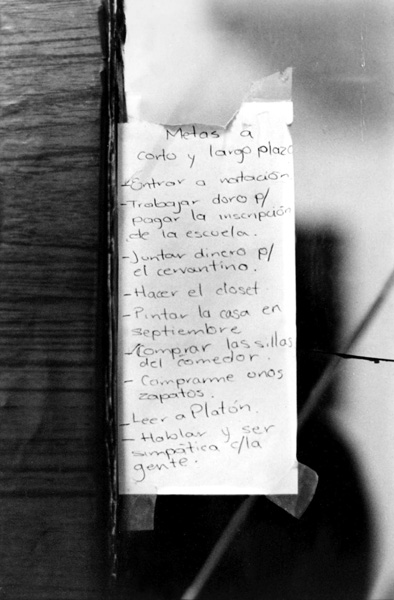 Metas a
corto y largo plazo
-Entrar a natación
-Trabajar duro p/
pagar la inscripción
de la escuela.
-Juntar dinero p/
el cervantino.
-Hacer el closet.
-Pintar la casa en
septiembre
-Comprar las sillas
del comedor.
- Comprarme unos
zapatos.
-Leer a Platón.
- Hablar y ser
simpática c/la
gente.